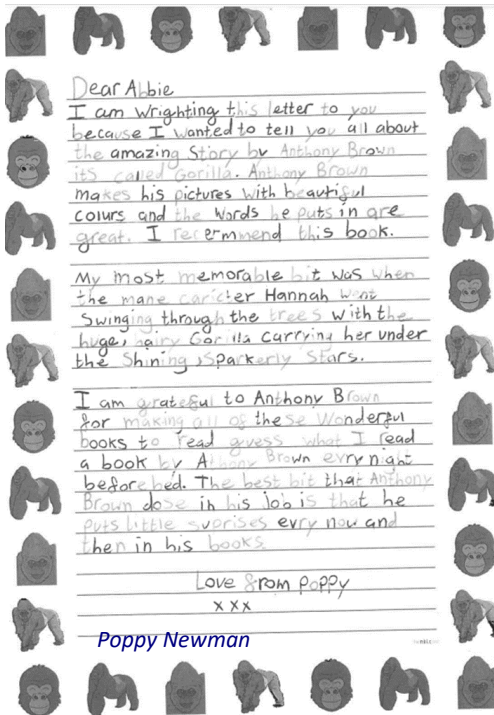 Dear Abbie
I am wrighting this letter to you
because I wanted to tell you all about
the amazing Story by Anthony Brown
its called Gorilla. Anthony Brown
makes his pictures with beautiful
colurs and the words he puts in are
great. I recermmend this book.
My most memorable bit was when
the mane caricter Hannah went
Swinging through the trees with the
huge, hairy Gorilla carrying her under
the Shining, Sparkerly Stars.
I am grateful to Anthony Brown
for making all of these Wonderful
books to read guess what I read
a book by Anthony Brown evry night
before bed. The best bit that Anthony
Brown dose in his job is that he
puts little suprises evry now and
then in his books.
Love from Poppy
x x x
Poppy Newman